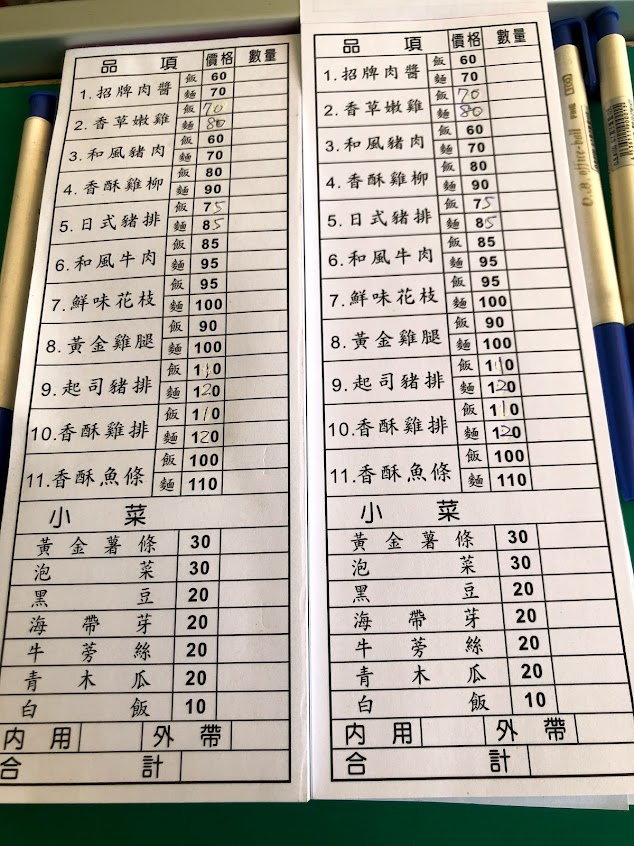 品 項 價格 數量
1.招牌肉醬 飯 60
麵 70
2.香草嫩雞 飯 70
麵 80
3.和風豬肉 飯 60
麵 70
4.香酥雞柳 飯 80
麵 90
5.日式豬排 飯 75
麵 85
6.和風牛肉 飯 85
麵 95
7.鮮味花枝 飯 95
麵 100
8.黃金雞腿 飯 90
麵 100
9.起司豬排 飯 110
麵 120
10.香酥雞排 飯 110
麵 120
11.香酥魚條 飯 100
麵 110
小菜
黃金薯條 30
泡菜 30
黑豆 20
海帶芽 20
牛蒡絲 20
青木瓜 20
白飯 10
內用 外帶
合計
品 項 價格 數量
1.招牌肉醬 飯 60
麵 70
2.香草嫩雞 飯 70
麵 80
3.和風豬肉 飯 60
麵 70
4.香酥雞柳 飯 80
麵 90
5.日式豬排 飯 75
麵 85
6.和風牛肉 飯 85
麵 95
7.鮮味花枝 飯 95
麵 100
8.黃金雞腿 飯 90
麵 100
9.起司豬排 飯 110
麵 120
10.香酥雞排 飯 110
麵 120
11.香酥魚條 飯 100
麵 110
小菜
黃金薯條 30
泡菜 30
黑豆 20
海帶芽 20
牛蒡絲 20
青木瓜 20
白飯 10
內用 外帶
合計
O.B office-ball